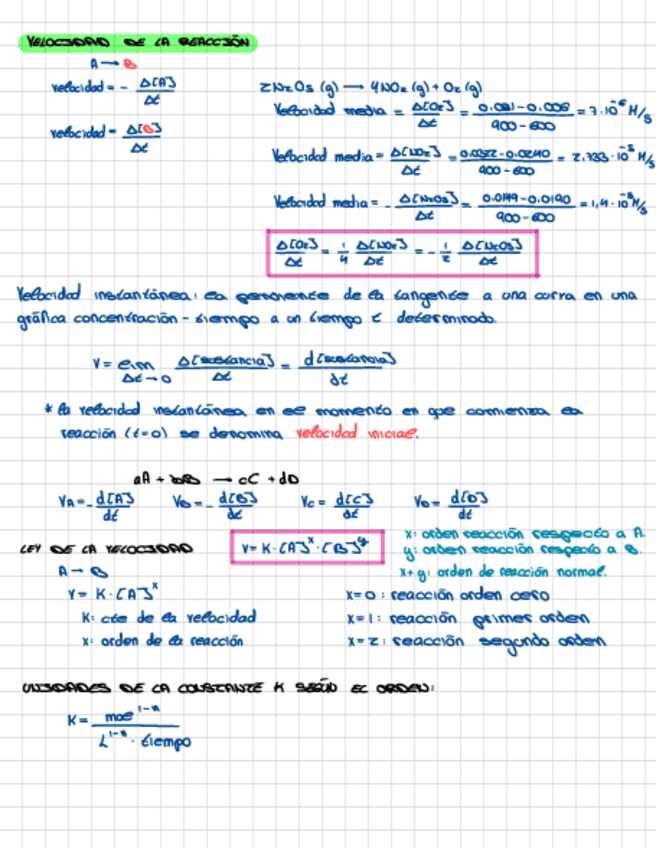 VELOCIDAD DE LA REACCIÓN
A → B
velocidad = - Δ[A] / Δt
velocidad = Δ[B] / Δt
2N2O5 (g) → 4NO2 (g) + O2 (g)
Velocidad media = Δ[O2] / Δt = / 900-600 = 7·10⁻⁶ M/s
Velocidad media = Δ[NO2] / Δt = / 900-600 = · 10⁻⁵ M/s
Velocidad media = - Δ[N2O5] / Δt = / 900-600 = 1,4·10⁻⁵ M/s
Δ[O2] / Δt = 1/4 Δ[NO2] / Δt = - 1/2 Δ[N2O5] / Δt
Velocidad instantánea: la pendiente de la tangente a una curva en una
gráfica concentración - tiempo a un tiempo t determinado.
V = lim Δt → 0 Δ[sustancia] / Δt = d[sustancia] / dt
* la velocidad instantánea en el momento en que comienza la
reacción (t=0) se denomina velocidad inicial.
aA + bB → cC + dD
VA = - d[A] / dt VB = - d[B] / dt VC = d[C] / dt VD = d[D] / dt
LEY DE LA VELOCIDAD
V = K · [A]ˣ · [B]ʸ
x: orden reacción respecto a A.
y: orden reacción respecto a B.
x+y: orden de reacción normal.
A → B
V = K · [A]ˣ
K: cte de la velocidad
x: orden de la reacción
x=0: reacción orden cero
x=1: reacción primer orden
x=2: reacción segundo orden
UNIDADES DE LA CONSTANTE K SEGÚN EL ORDEN:
K = mol¹⁻ⁿ / L¹⁻ⁿ · tiempo